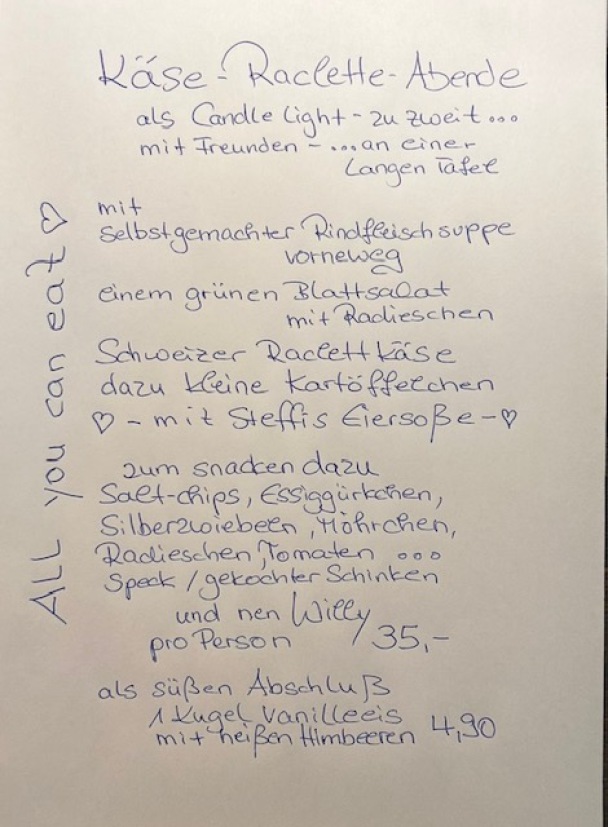 Käse-Raclette-Abende
als Candle Light - zu zweit ...
mit Freunden - ... an einer
Langen Tafel
mit
selbstgemachter Rindfleischsuppe
vorneweg
einem grünen Blattsalat
mit Radieschen
Schweizer Raclettkäse
dazu kleine Kartöffelchen
♡ - mit Steffis Eiersoße - ♡
zum snacken dazu
Salt-chips, Essiggürkchen,
Silberzwiebeln, Möhrchen,
Radieschen, Tomaten ...
Speck / gekochter Schinken
und nen Willy
pro Person / 35,-
als süßen Abschluß
1 Kugel Vanilleeis
mit heißen Himbeeren 4,90
ALL you can eat ♡